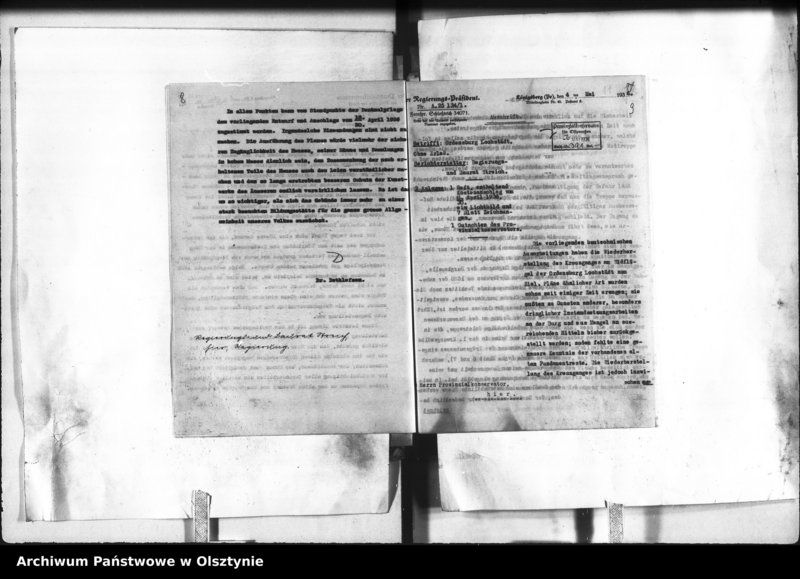 8
In allen Punkten kann vom Standpunkte der Denkmalpflege
dem vorliegenden Entwurf und Anschlage vom April 1936
zugestimmt werden. Irgendwelche Einwendungen sind nicht zu
machen. Die Ausführung des Planes würde vielmehr der
Zugänglichkeit des Hauses, seiner Räume und Sammlungen
in hohem Masse dienlich sein, den Zusammenhang der noch er-
haltenen Teile des Hauses auch den Laien verständlicher ma-
chen und den so lange erstrebten besseren Schutz der Kunst-
werke des Äusseren endlich verwirklichen lassen. Es ist das
um so wichtiger, als sich das Gebäude immer mehr zu einer
stark besuchten Bildungsstätte für die ganze grosse Allge-
meinheit unseres Volkes auswächst.
Dr. Dethlefsen.
Regierungs- und Baurat
hier, Regierung
Der Regierungs-Präsident.
Nr. A.25 134/1.
Königsberg (Pr), den 4 Mai 193
Betrifft: Ordensburg Lochstädt.
Ohne Erlass.
Berichterstatter: Regierungs-
und Baurat Streich.
2 Anlagen: 1 Heft, enthaltend
Kostenanschlag vom
April 1936,
ein Lichtbild und
7 Blatt Zeichnun-
gen.
1 Gutachten des Pro-
vinzialkonservators.
Die vorliegenden bautechnischen
Bearbeitungen haben die Wiederher-
stellung des Kreuzganges am Südflü-
gel der Ordensburg Lochstädt zum
Ziel. Pläne ähnlicher Art wurden
schon seit einiger Zeit erwogen; sie
mußten zu Gunsten anderer, besonders
dringlicher Instandsetzungsarbeiten
an der Burg und aus Mangel an aus-
reichenden Mitteln bisher zurückge-
stellt werden; auch fehlte eine ge-
nauere Kenntnis der vorhandenen al-
ten Fundamentreste. Die Wiederherstel-
lung des Kreuzganges ist jedoch inzwi-
schen
Herrn Provinzialkonservator,
hier.
Archiwum Państwowe w Olsztynie